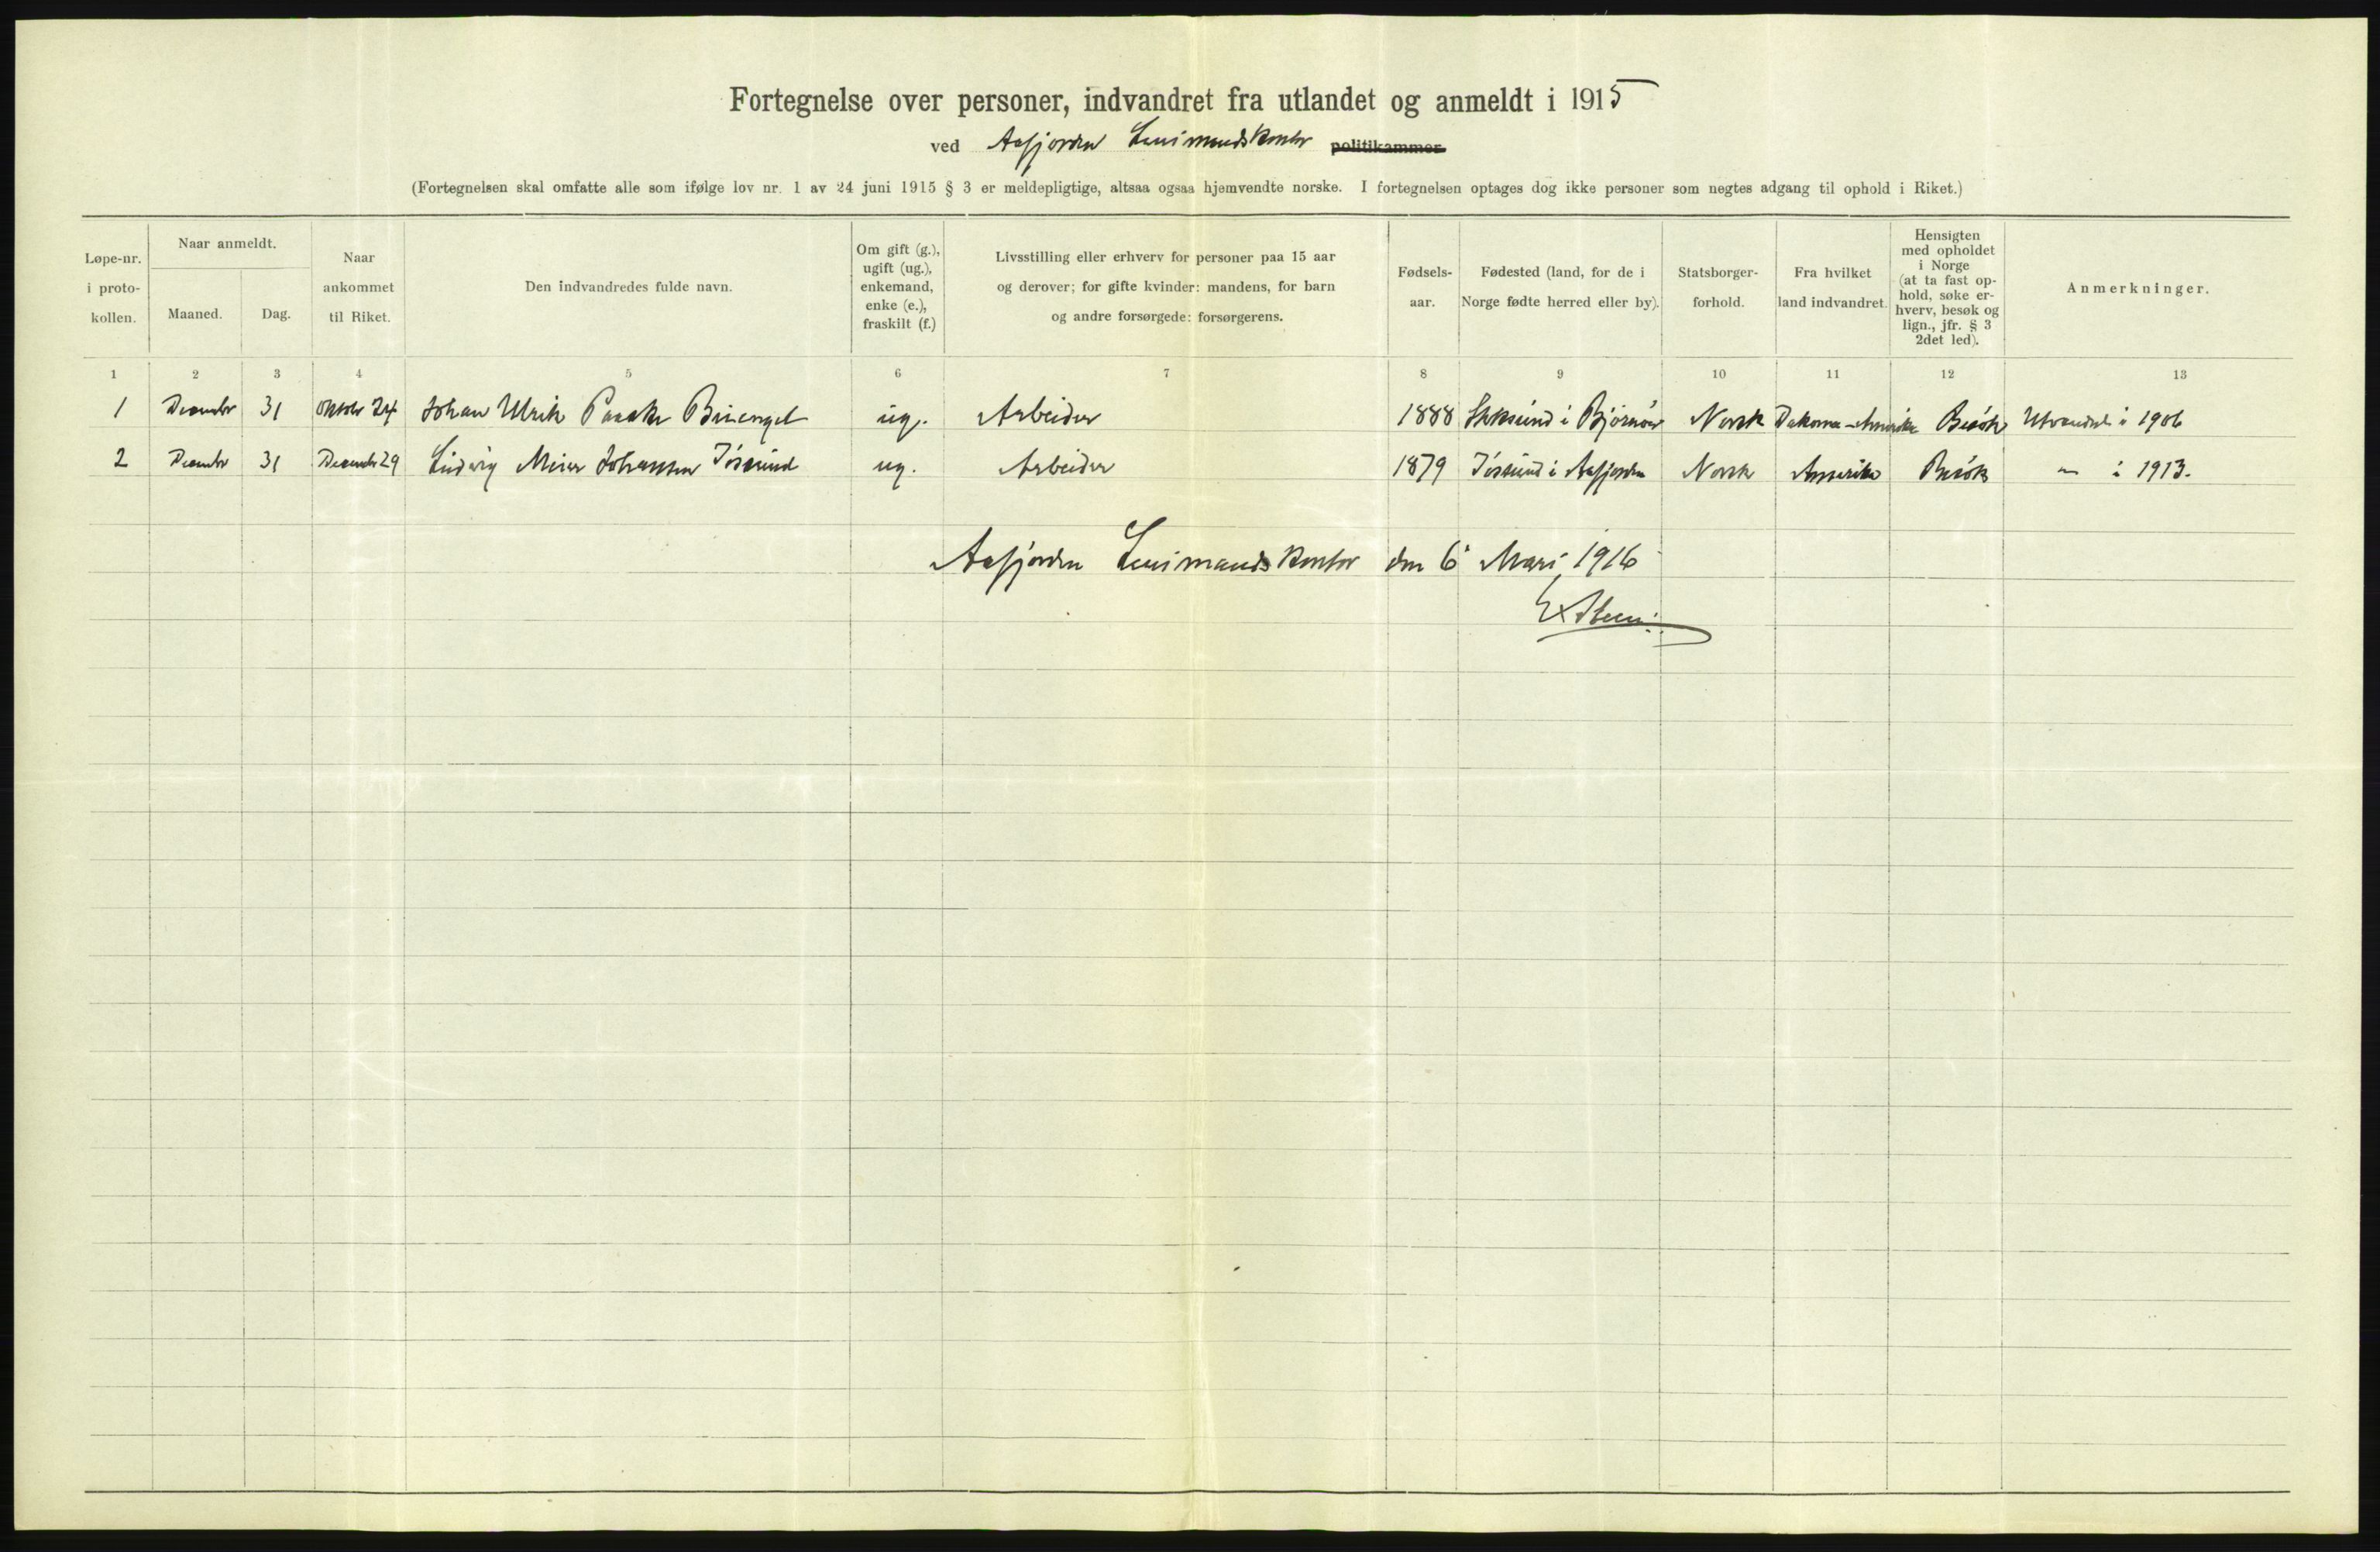 Fortegnelse over personer, indvandret fra utlandet og anmeldt i 1915
ved Aafjorden Lensmandskontor politikammer
(Fortegnelsen skal omfatte alle som ifølge lov nr. 1 av 24 juni 1915 § 3 er meldepligtige, altsaa ogsaa hjemvendte norske. I fortegnelsen optages dog ikke personer som negtes adgang til ophold i Riket.)
Løpe-nr.
i proto-
kollen.
Naar anmeldt.
Maaned.
Dag.
Naar
ankommet
til Riket.
Den indvandredes fulde navn.
Om gift (g.),
ugift (ug.),
enkemand,
enke (e.),
fraskilt (f.)
Livsstilling eller erhverv for personer paa 15 aar
og derover; for gifte kvinder: mandens, for barn
og andre forsørgede: forsørgerens.
Fødsels-
aar.
Fødested (land, for de i
Norge fødte herred eller by).
Statsborger-
forhold.
Fra hvilket
land indvandret.
Hensigten
med opholdet
i Norge
(at ta fast op-
hold, søke er-
hverv, besøk og
lign., jfr. § 3
2det led).
Anmerkninger.
1 2 3 4 5 6 7 8 9 10 11 12 13
1 December 31 Oktober 24 Johan Ulrik ug. Arbeider 1888 Stoksund i Bjørnør Norsk Amerika Besøk Utvandret i 1906
2 December 31 December 29 Ludvig Meier Johansen Jøssund ug. Arbeider 1879 Jøssund i Aafjorden Norsk Amerika Besøk — i 1913.
Aafjorden Lensmandskontor den 6 Mars 1916